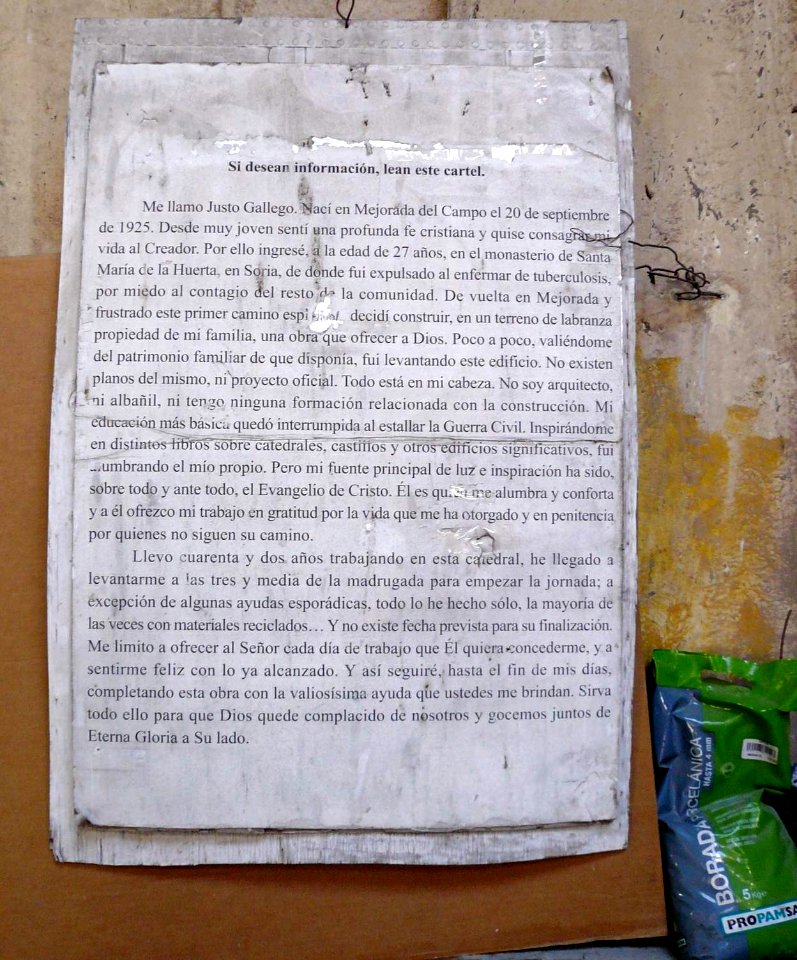 Si desean información, lean este cartel.
Me llamo Justo Gallego. Nací en Mejorada del Campo el 20 de septiembre
de 1925. Desde muy joven sentí una profunda fe cristiana y quise consagrar mi
vida al Creador. Por ello ingresé, a la edad de 27 años, en el monasterio de Santa
María de la Huerta, en Soria, de donde fui expulsado al enfermar de tuberculosis,
por miedo al contagio del resto de la comunidad. De vuelta en Mejorada y
frustrado este primer camino decidí construir, en un terreno de labranza
propiedad de mi familia, una obra que ofrecer a Dios. Poco a poco, valiéndome
del patrimonio familiar de que disponía, fui levantando este edificio. No existen
planos del mismo, ni proyecto oficial. Todo está en mi cabeza. No soy arquitecto,
ni albañil, ni tengo ninguna formación relacionada con la construcción. Mi
educación más básica quedó interrumpida al estallar la Guerra Civil. Inspirándome
en distintos libros sobre catedrales, castillos y otros edificios significativos, fui
el mío propio. Pero mi fuente principal de luz e inspiración ha sido,
sobre todo y ante todo, el Evangelio de Cristo. Él es quien me alumbra y conforta
y a él ofrezco mi trabajo en gratitud por la vida que me ha otorgado y en penitencia
por quienes no siguen su camino.
Llevo cuarenta y dos años trabajando en esta catedral, he llegado a
levantarme a las tres y media de la madrugada para empezar la jornada; a
excepción de algunas ayudas esporádicas, todo lo he hecho sólo, la mayoría de
las veces con materiales reciclados… Y no existe fecha prevista para su finalización.
Me limito a ofrecer al Señor cada día de trabajo que Él quiera concederme, y a
sentirme feliz con lo ya alcanzado. Y así seguiré, hasta el fin de mis días,
completando esta obra con la valiosísima ayuda que ustedes me brindan. Sirva
todo ello para que Dios quede complacido de nosotros y gocemos juntos de
Eterna Gloria a Su lado.
HASTA 4 mm
5 Kg
PROPAMSA